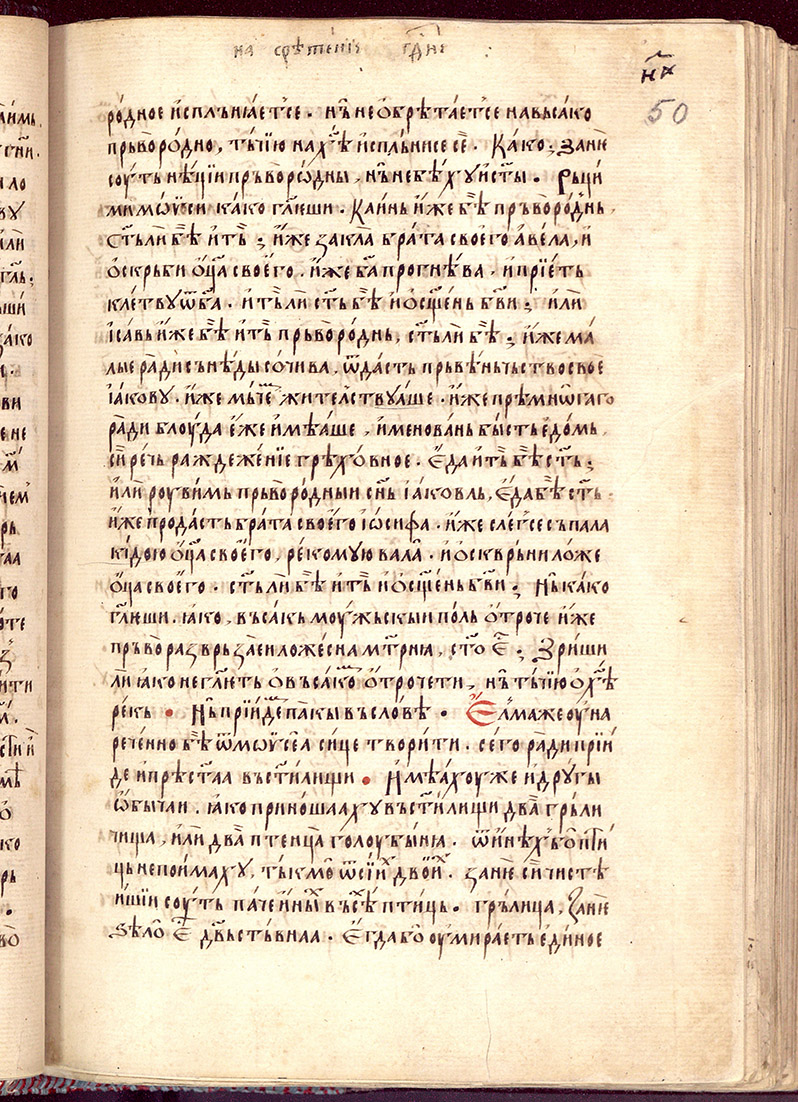 на срѣтенїе гдⷭ҇нѥ
н҃х
50
ро́дное и҆сплъня́етсе · нъ̀ не ѡ҆брѣта́етсе на въса́ко
прьворо́дно, тъ́чїю на хⷭ҇ѣ и҆спль́нисе сѐ · Ка́ко; зани̏
соу́ть нѣ́цїи прьворѡ́дны, нъ̀ не бѣ́х у и҆ ст҃ы · Рьци́
ми мѡѵ̈си ка́ко гл҃еши · Ка́инь и҆́же бѣ̏ прьворо́днь,
ст҃ь ли бѣ̏ и҆ тъ̏; и҆́же закла̀ бра́та своѐго а҆ве́ла, и҆
ѡ҆скрьби ѡ҆ц҃а своѐго · и҆́же б҃а прогнѣ́ва, и҆ прїе́ть
кле́тву ѿ б҃а · и҆ тъ́ ли ст҃ь бѣ̏ и҆ ѡ҆сщ҃е́нь б҃ви; и҆лѝ
і҆са́вь и҆́же бѣ̏ и҆ тъ̏ прьворо́днь, ст҃ь ли бѣ̏; и҆́же ма́
лые ра́ди сънѣ́ды со́чива, ѿда́сть прьве́ньство своѐ
і҆а́кову · и҆́же мѧте́жи те́лствуаше · и҆́же прѣмнѡ́гаго
ра́ди блоу́да е҆́же и҆мѣ́аше, и҆менова́нь бы́сть е҆до́мь,
сїи́ рѣчь ражеже́нїе грѣхо́вное · Е҆да̀ и҆ тъ̏ бѣ̏ ст҃ь;
и҆лѝ роуви́мь прьворо́дныи сн҃ь і҆а́ковль, Е҆да̀ бѣ̏ ст҃ь
и҆́же прода́сть бра́та своѐго і҆ѡ́сифа · и҆́же сле́гсе съ пала
кїдою ѡ҆ц҃а своѐго, реко́мую ва́ла · и҆ ѡ҆сквръни ло́же
ѡ҆ц҃а своѐго · ст҃ь ли бѣ̏ и҆ тъ̏ и҆ ѡ҆сщ҃е́нь б҃ви; Нъ̀ ка́ко
гл҃еши · ꙗ҆ко, въса́кь моу́жьскыи по́ль ѡ҆́троче и҆́же
пръво разврьза́еи ложесна̀ мт҃рня, ст҃о е҆ⷭ҇; Зри́ши
ли ꙗ҆ко не гл҃еть ѡ҆ въса́ком ѡ҆трочети, нъ̀ тъ́чїю ѡ҆ хⷭ҇ѣ
ре́къ · Нъ̀ прїиде́м па́кы въ сло́вѣ · Е҆лма́же оу҆ на
рече́нно бѣ̏ ѿ мѡѵ̈се́а си́це твори́ти · сего̀ ра́ди прїи́
де и҆ прѣст҃аа въ ст҃и́лищи · И҆мѣ́ахоу же и҆ дрꙋ́гы
ѡ҆бы́чаи · ꙗ҆ко приноша́аху въ ст҃и́лищи два̏ грьли
чища, и҆лѝ два̏ птенца̀ голоуби́ня · ѿ и҆нѣ́х бо пти́
ць не пои́маху, тъ́кмо ѿ сїи́х двои́х · зани̏ сїи́ чистѣ
и҆шїи соу́ть па́че и҆ны́х всѣ́х пти́ць · грь́лица, зани̏
ѕѣлѡ̀ е҆ⷭ҇ дв҃ьство́вила · Е҆гда́ бо оу҆мира́еть е҆ди́ное